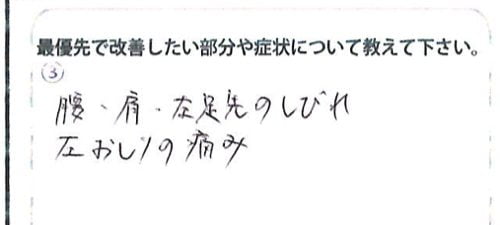 最優先で改善したい部分や症状について教えて下さい。
③
腰・肩・左足先のしびれ
左おしりの痛み